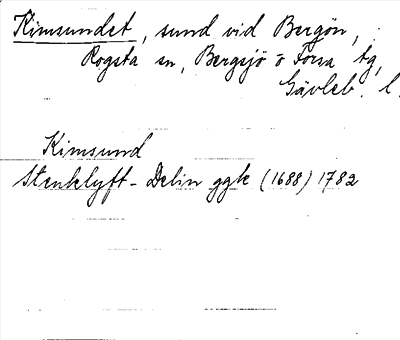 Kimsundet, sund vid Bergön,
Rogsta sn, Bergsjö o Forsa tg,
Gävleb. l.
Kimsund
Stenklyft - Delin ggk (1688) 1782